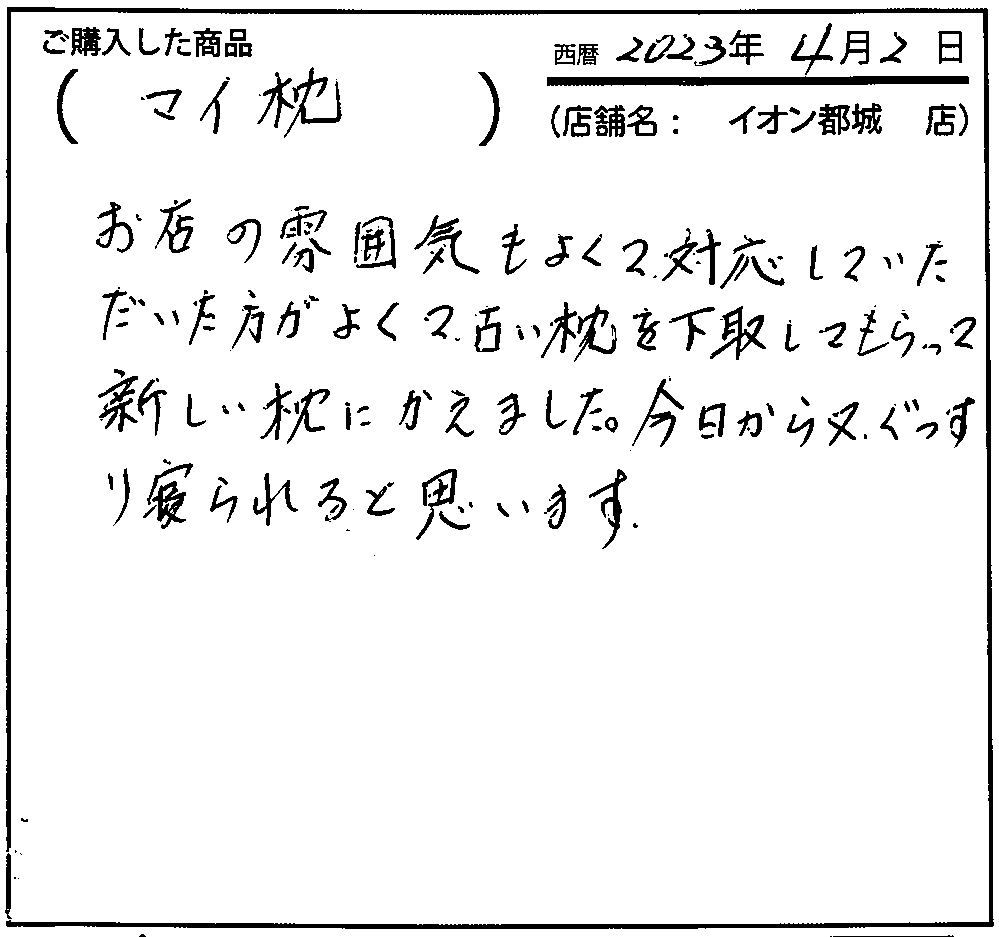 ご購入した商品
西暦 2023年 4月2日
( マイ枕 )
(店舗名: イオン都城 店)
お店の雰囲気もよくて.対応していた
だいた方がよくて.古い枕を下取してもらって
新しい枕にかえました。今日から又.ぐっす
り寝られると思います.